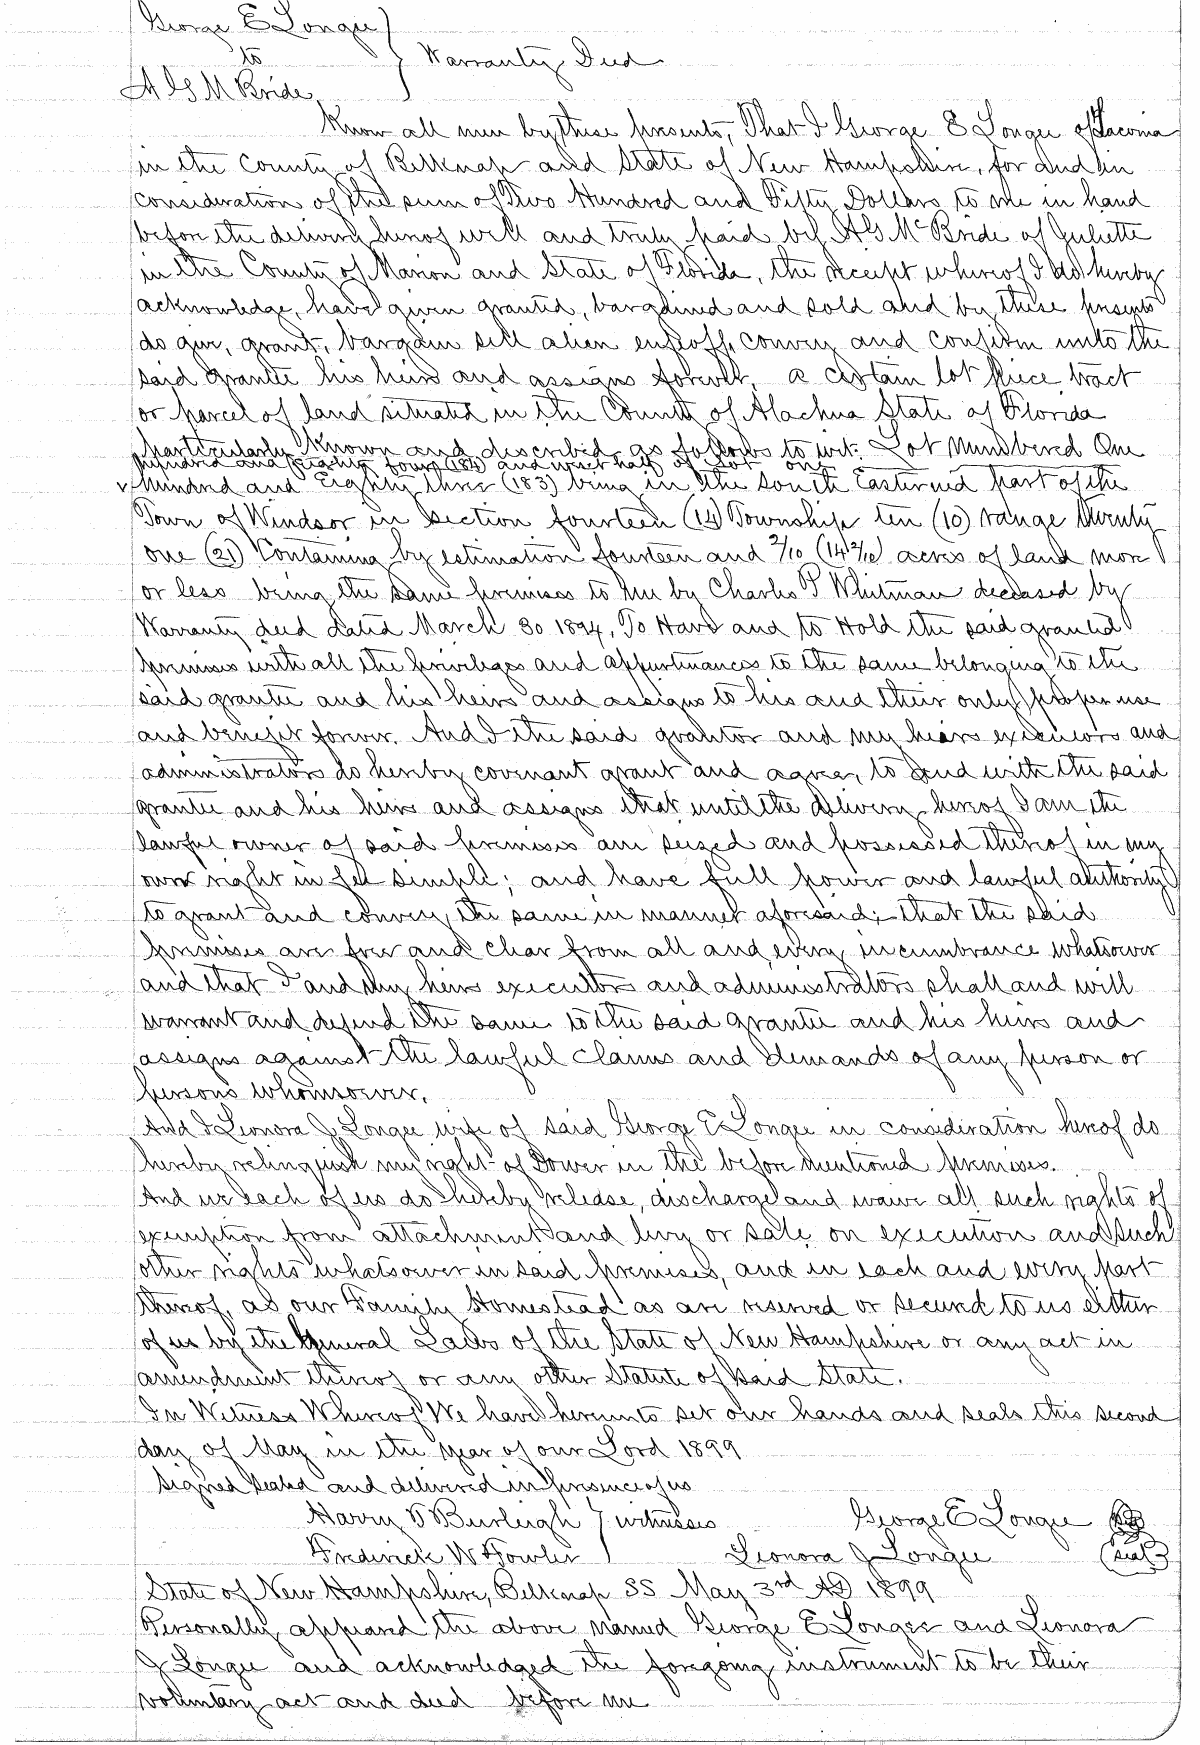 George E Longee
to } Warranty Deed
A G McBride
Know all men by these presents, That I George E Longee of Laconia
in the County of Belknap and State of New Hampshire, for and in
consideration of the sum of Two Hundred and Fifty Dollars to me in hand
before the delivery hereof well and truly paid by A G McBride of Juliette
in the County of Marion and State of Florida, the receipt whereof I do hereby
acknowledge, have given granted, bargained and sold and by these presents
do give, grant, bargain sell alien enfeoff, convey and confirm unto the
said grantee his heirs and assigns forever, a certain lot piece tract
or parcel of land situated in the County of Alachua State of Florida
particularly known and described as follows to wit: Lot Numbered One
hundred and Eighty four (184) and west half of Lot one
hundred and Eighty three (183) being in the South Easterned part of the
Town of Windsor in Section fourteen (14) Township ten (10) range twenty
one (21) Containing by estimation fourteen and 2/10 (14 2/10) acres of land more
or less being the same premises to me by Charles P Whitman deceased by
Warranty deed dated March 30 1894, To Have and to Hold the said granted
premises with all the privileges and appurtinances to the same belonging to the
said grantee and his heirs and assigns to his and their only proper use
and benefit forever. And I the said grantor and my heirs executors and
administrators do hereby covenant grant and agree, to and with the said
grantee and his heirs and assigns that until the delivery hereof I am the
lawful owner of said premises am seized and possessed thereof in my
own right in fee simple; and have full power and lawful authority
to grant and convey the same in manner aforesaid; that the said
premises are free and clear from all and every incumbrance whatsoever
and that I and my heirs executors and administrators shall and will
warrant and defend the same to the said grantee and his heirs and
assigns against the lawful claims and demands of any person or
persons whomsoever.
And I Leonora J Longee wife of said George E Longee in consideration hereof do
hereby relinquish my right of Dower in the before mentioned premises.
And we each of us do hereby release, discharge and waive all such rights of
exemption from attachment and levy or sale on execution and such
other rights whatsoever in said premises, and in each and every part
thereof, as our Family Homestead as are reserved or secured to us either
of us by the General Laws of the State of New Hampshire or any act in
amendment thereof or any other Statute of said State.
In Witness Whereof We have hereunto set our hands and seals this second
day of May in the year of our Lord 1899
Signed sealed and delivered in presence of us
Harry D Burleigh } witnesses George E Longee
Frederick W Fowler Leonora J Longee (seal)
State of New Hampshire, Belknap SS May 3rd AD 1899
Personally appeared the above named George E Longee and Leonora
J Longee and acknowledged the foregoing instrument to be their
voluntary act and deed before me